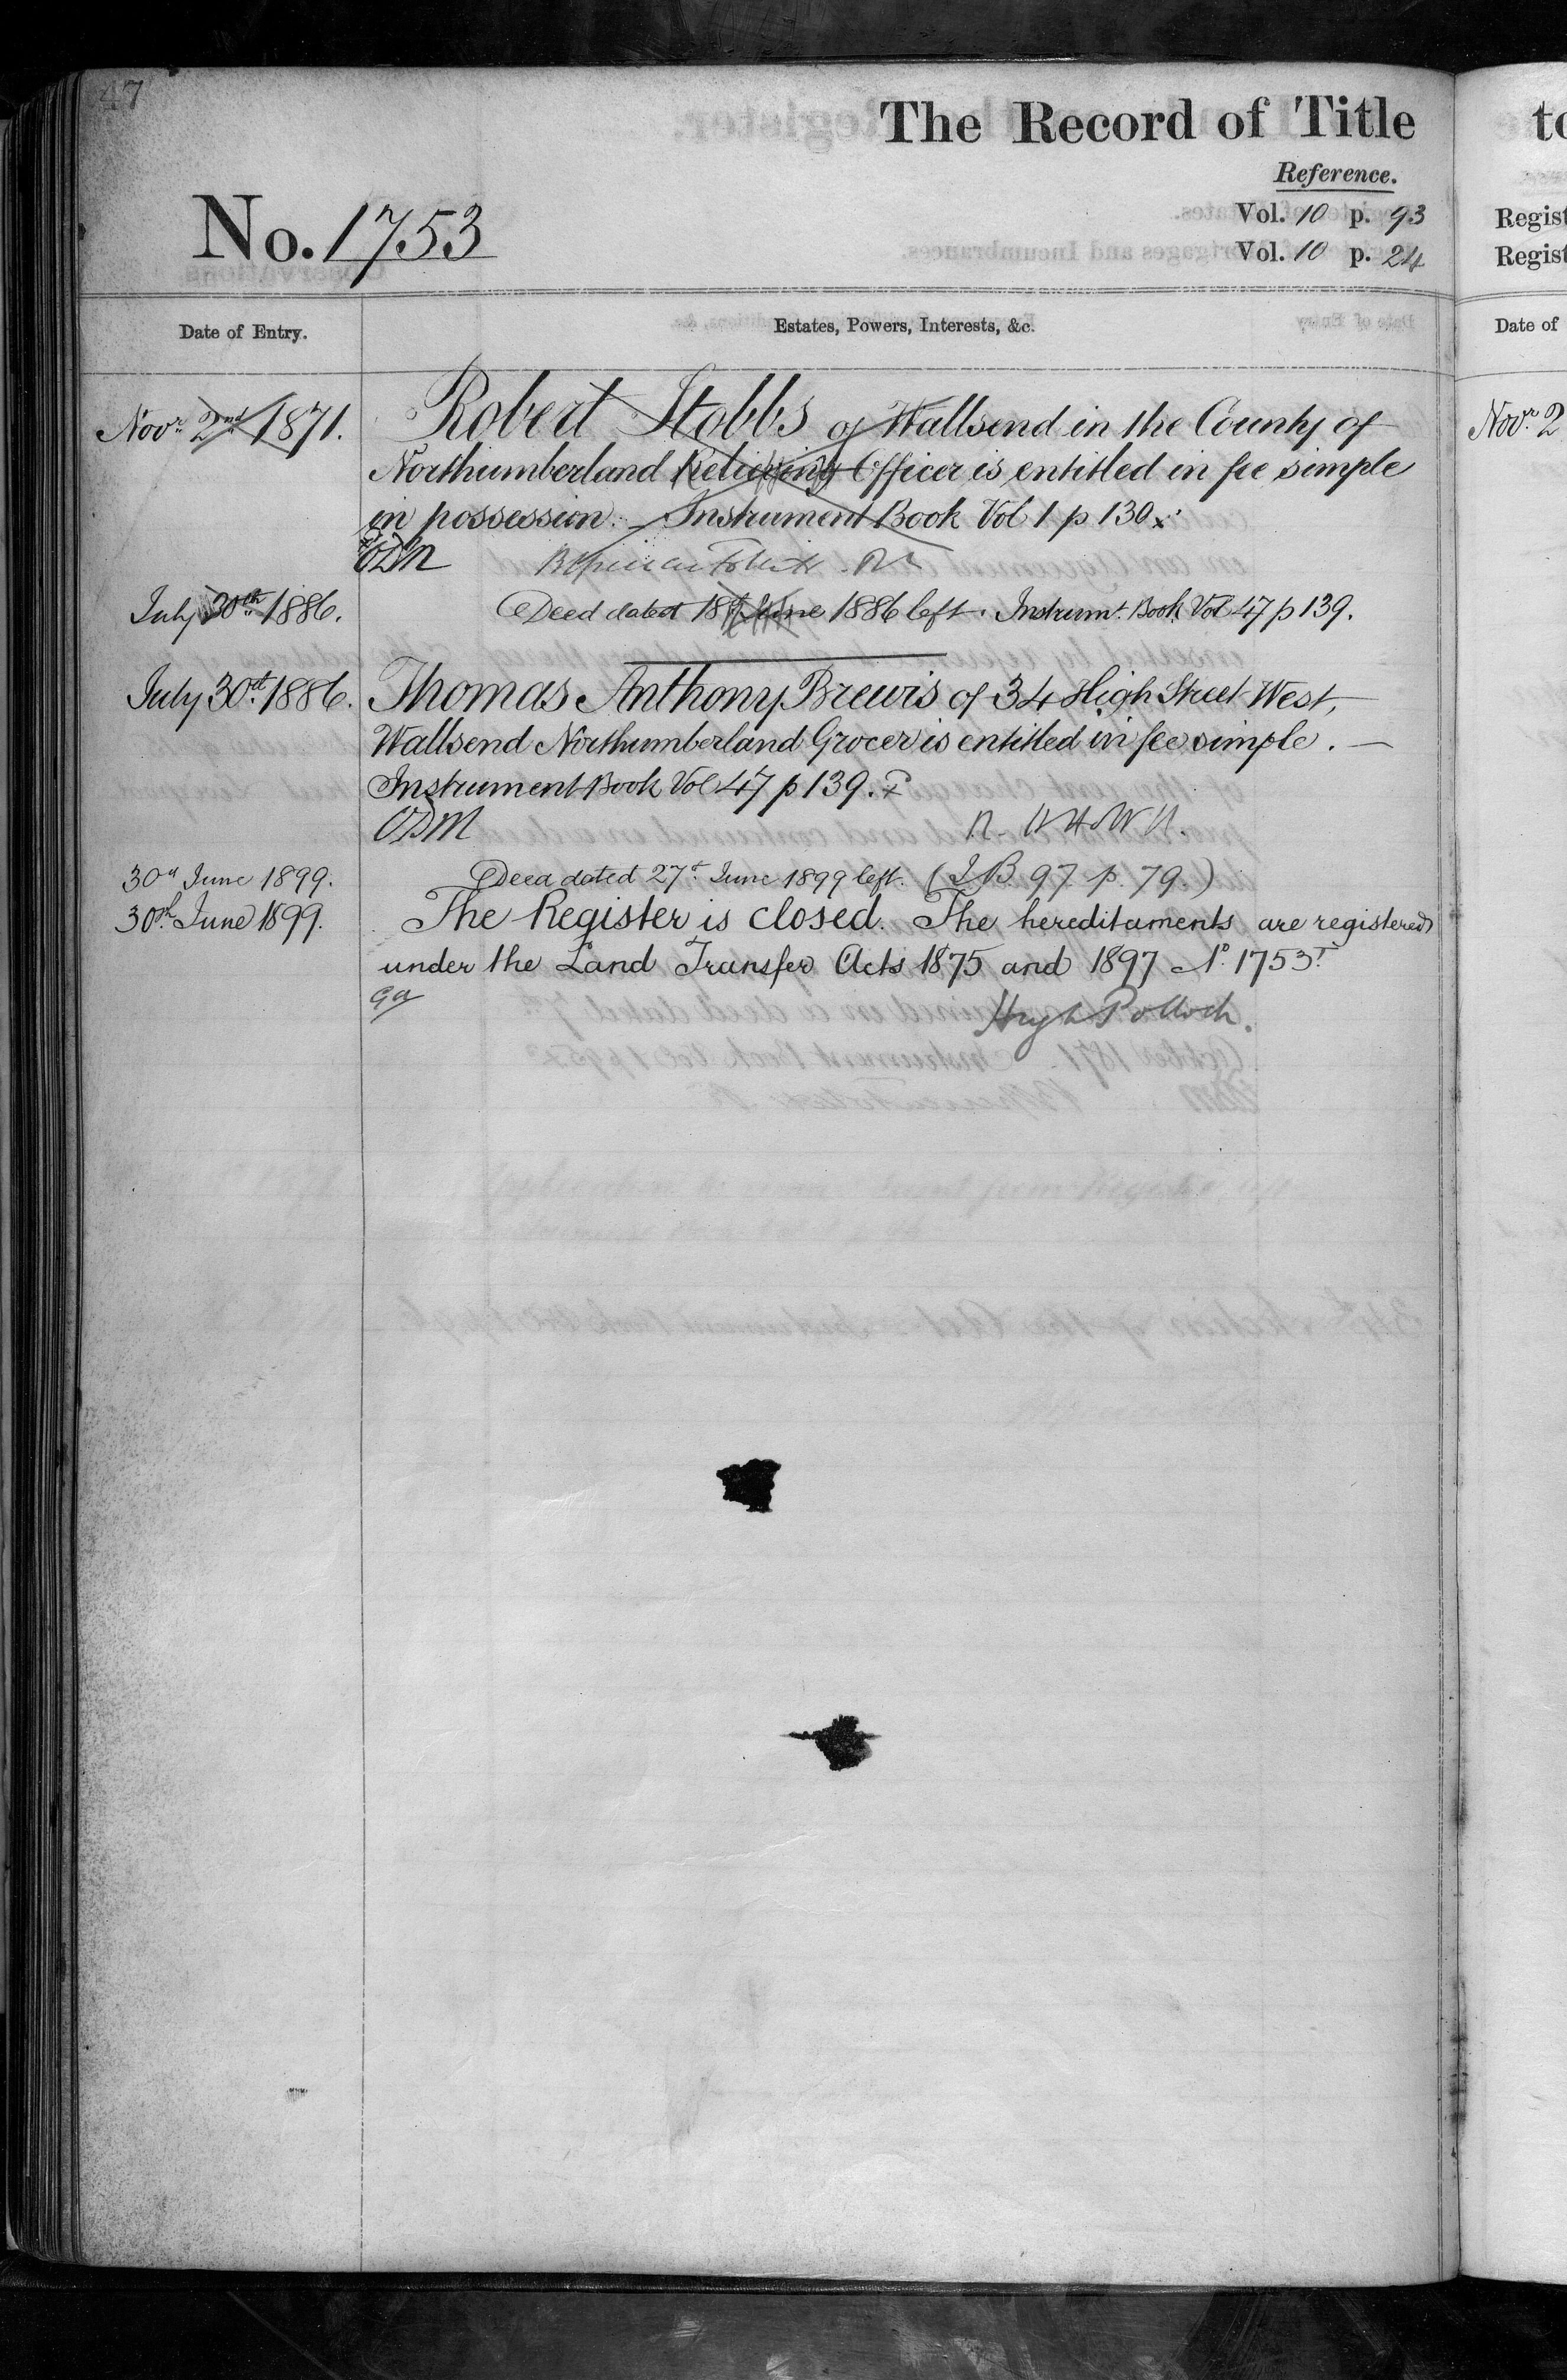 47
The Record of Title
Reference.
No. 1753
Vol. 10 p. 93
Vol. 10 p. 24
Date of Entry.
Estates, Powers, Interests, &c.
Novr. 2nd 1871.
Robert Stobbs of Wallsend in the County of
Northumberland Relieving Officer is entitled in fee simple
in possession. – Instrument Book Vol 1 p 130 x
ODM
July 30th 1886.
Deed dated 18th June 1886 left. Instrumt. Book Vol 47 p 139.
July 30th 1886.
Thomas Anthony Brewis of 34 High Street West,
Wallsend Northumberland Grocer is entitled in fee simple. —
Instrument Book Vol 47 p 139.
ODM
30th June 1899.
Deed dated 27th June 1899 left. (I.B. 97 p. 79.)
30th June 1899.
The Register is closed. The hereditaments are registered
under the Land Transfer Acts 1875 and 1897 No. 1753T.
Hugh Pollock.
to
Regist
Regist
Date of
Novr. 2